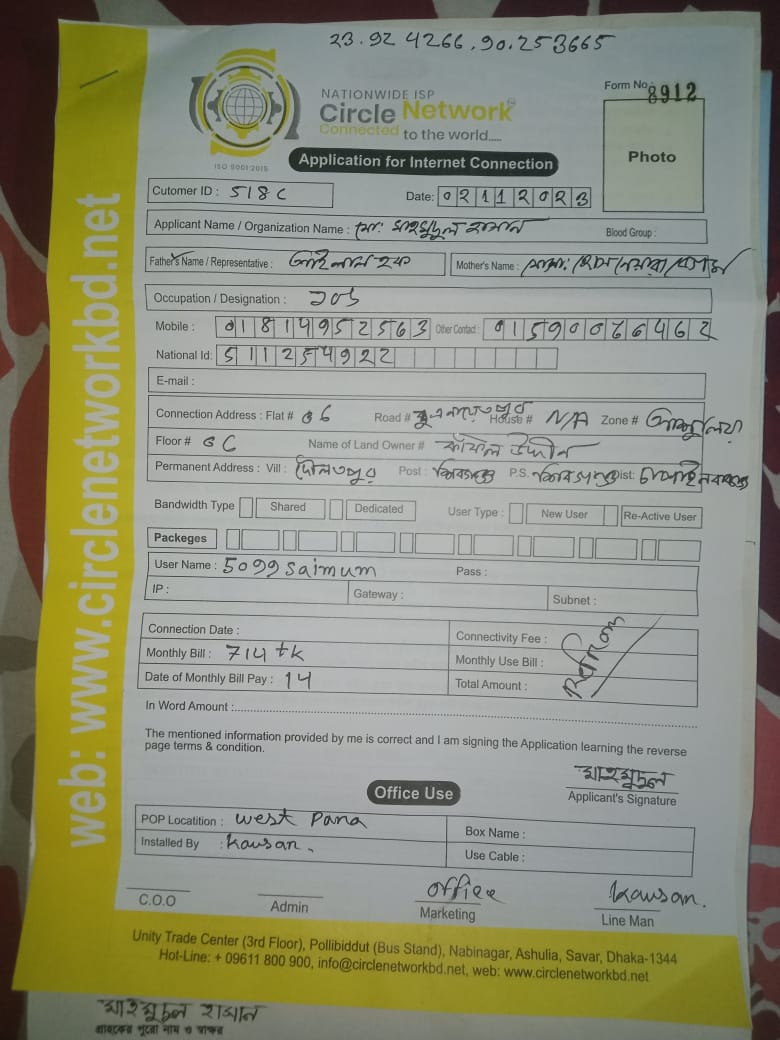 23.92 4266.90.253665
NATIONWIDE ISP
Circle Network
Connected to the world.....
ISO 9001:2015
Form No: 8912
Photo
Application for Internet Connection
Cutomer ID : 518C Date: 02112023
Applicant Name / Organization Name : মো: মাহমুদুল হাসান Blood Group :
Father's Name / Representative : Mother's Name :
Occupation / Designation : জব
Mobile : 01814952563 Other Contact : 01590076462
National Id: 511254922
E-mail :
Connection Address : Flat # G6 Road # House # N/A Zone # আশুলিয়া
Floor # GC Name of Land Owner # উদ্দীন
Permanent Address : Vill : দৌলতপুর Post : শিবগঞ্জ P.S. শিবগঞ্জ Dist: চাপাইনবাবগঞ্জ
Bandwidth Type Shared Dedicated User Type : New User Re-Active User
Packeges
User Name : 5099saimum Pass :
IP : Gateway : Subnet :
Connection Date : Connectivity Fee :
Monthly Bill : 714 tk Monthly Use Bill :
Date of Monthly Bill Pay : 14 Total Amount :
In Word Amount :
The mentioned information provided by me is correct and I am signing the Application learning the reverse
page terms & condition.
মাহমুদুল
Applicant's Signature
Office Use
POP Locatition : west Para Box Name :
Installed By : kawsan. Use Cable :
office kawsan.
C.O.O Admin Marketing Line Man
Unity Trade Center (3rd Floor), Pollibiddut (Bus Stand), Nabinagar, Ashulia, Savar, Dhaka-1344
Hot-Line: + 09611 800 900, info@circlenetworkbd.net, web: www.circlenetworkbd.net
মাহমুদুল হাসান
গ্রাহকের পুরো নাম ও স্বাক্ষর
web: www.circlenetworkbd.net